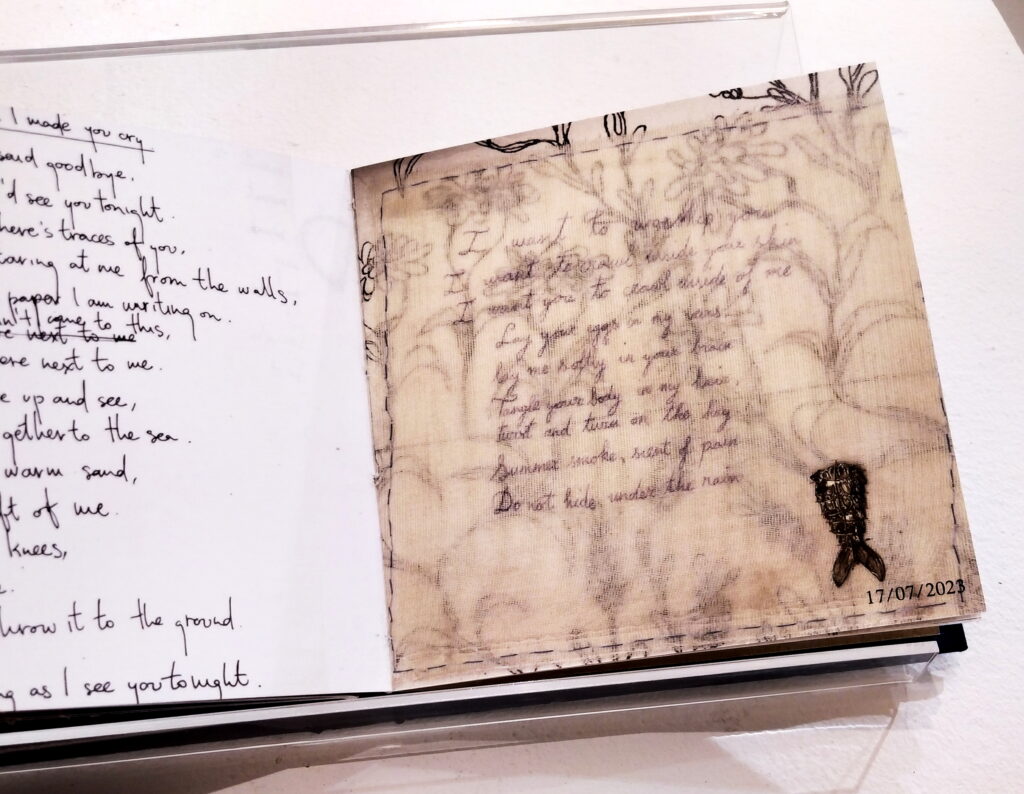 I made you cry
said goodbye.
'd see you tonight.
here's traces of you,
at me from the walls,
paper I am writing on.
to this,
next to me
ere next to me.
e up and see,
gether to the sea.
warm sand,
ft of me.
knees,
throw it to the ground.
as I see you tonight.
I want to worship you
I want to crawl inside your skin
I want you to inside of me
Lay your eggs in my
Lay me softly in your brain
Tangle your body in my hair,
twist and turn on the
Summer smoke, scent of pain
Do not hide under the rain
17/07/2023